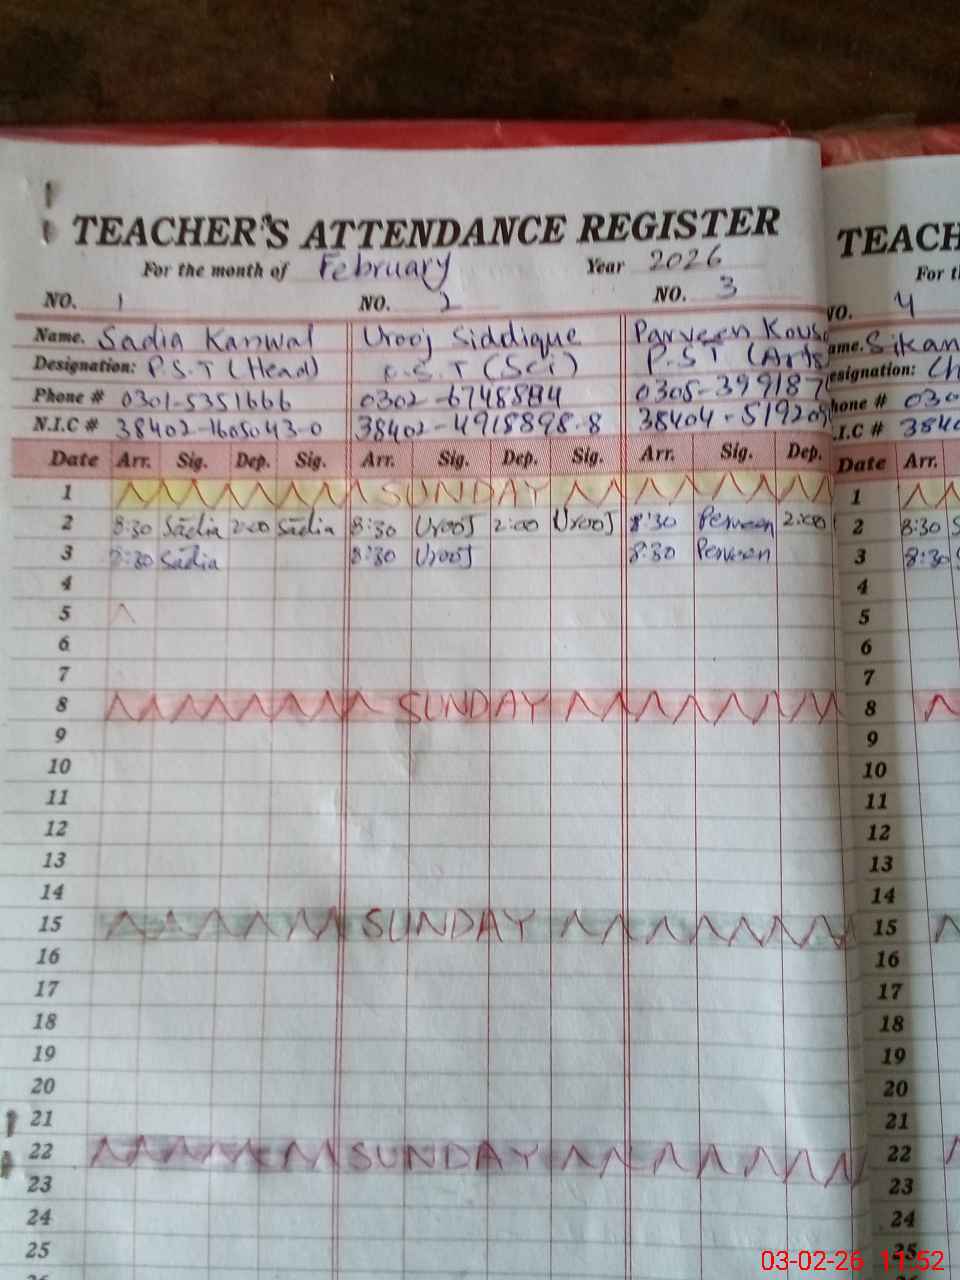 TEACHER'S ATTENDANCE REGISTER
For the month of February Year 2026
NO. 1 NO. 2 NO. 3
Name. Sadia Kanwal Urooj Siddique Parveen Kous
Designation: P.S.T (Head) P.S.T (Sci) P.S.T (Arts
Phone # 0301-5351666 0302-6748514 0305-399187
N.I.C # 38402-1605043-0 38402-4918898-8 38404-519209
Date Arr. Sig. Dep. Sig. Arr. Sig. Dep. Sig. Arr. Sig. Dep.
1 SUNDAY
2 8:30 Sadia 2:00 Sadia 8:30 Urooj 2:00 Urooj 8:30 Perveen 2:00
3 8:30 Sadia 8:30 Urooj 8:30 Perveen
4
5
6
7
8 SUNDAY
9
10
11
12
13
14
15 SUNDAY
16
17
18
19
20
21
22 SUNDAY
23
24
25
TEACH
For th
NO. 4
ame. Sikan
esignation: Ch
hone # 030
I.C # 3840
Date Arr.
1
2 8:30 S
3 8:30 S
4
5
6
7
8
9
10
11
12
13
14
15
16
17
18
19
20
21
22
23
24
25
03-02-26 11:52